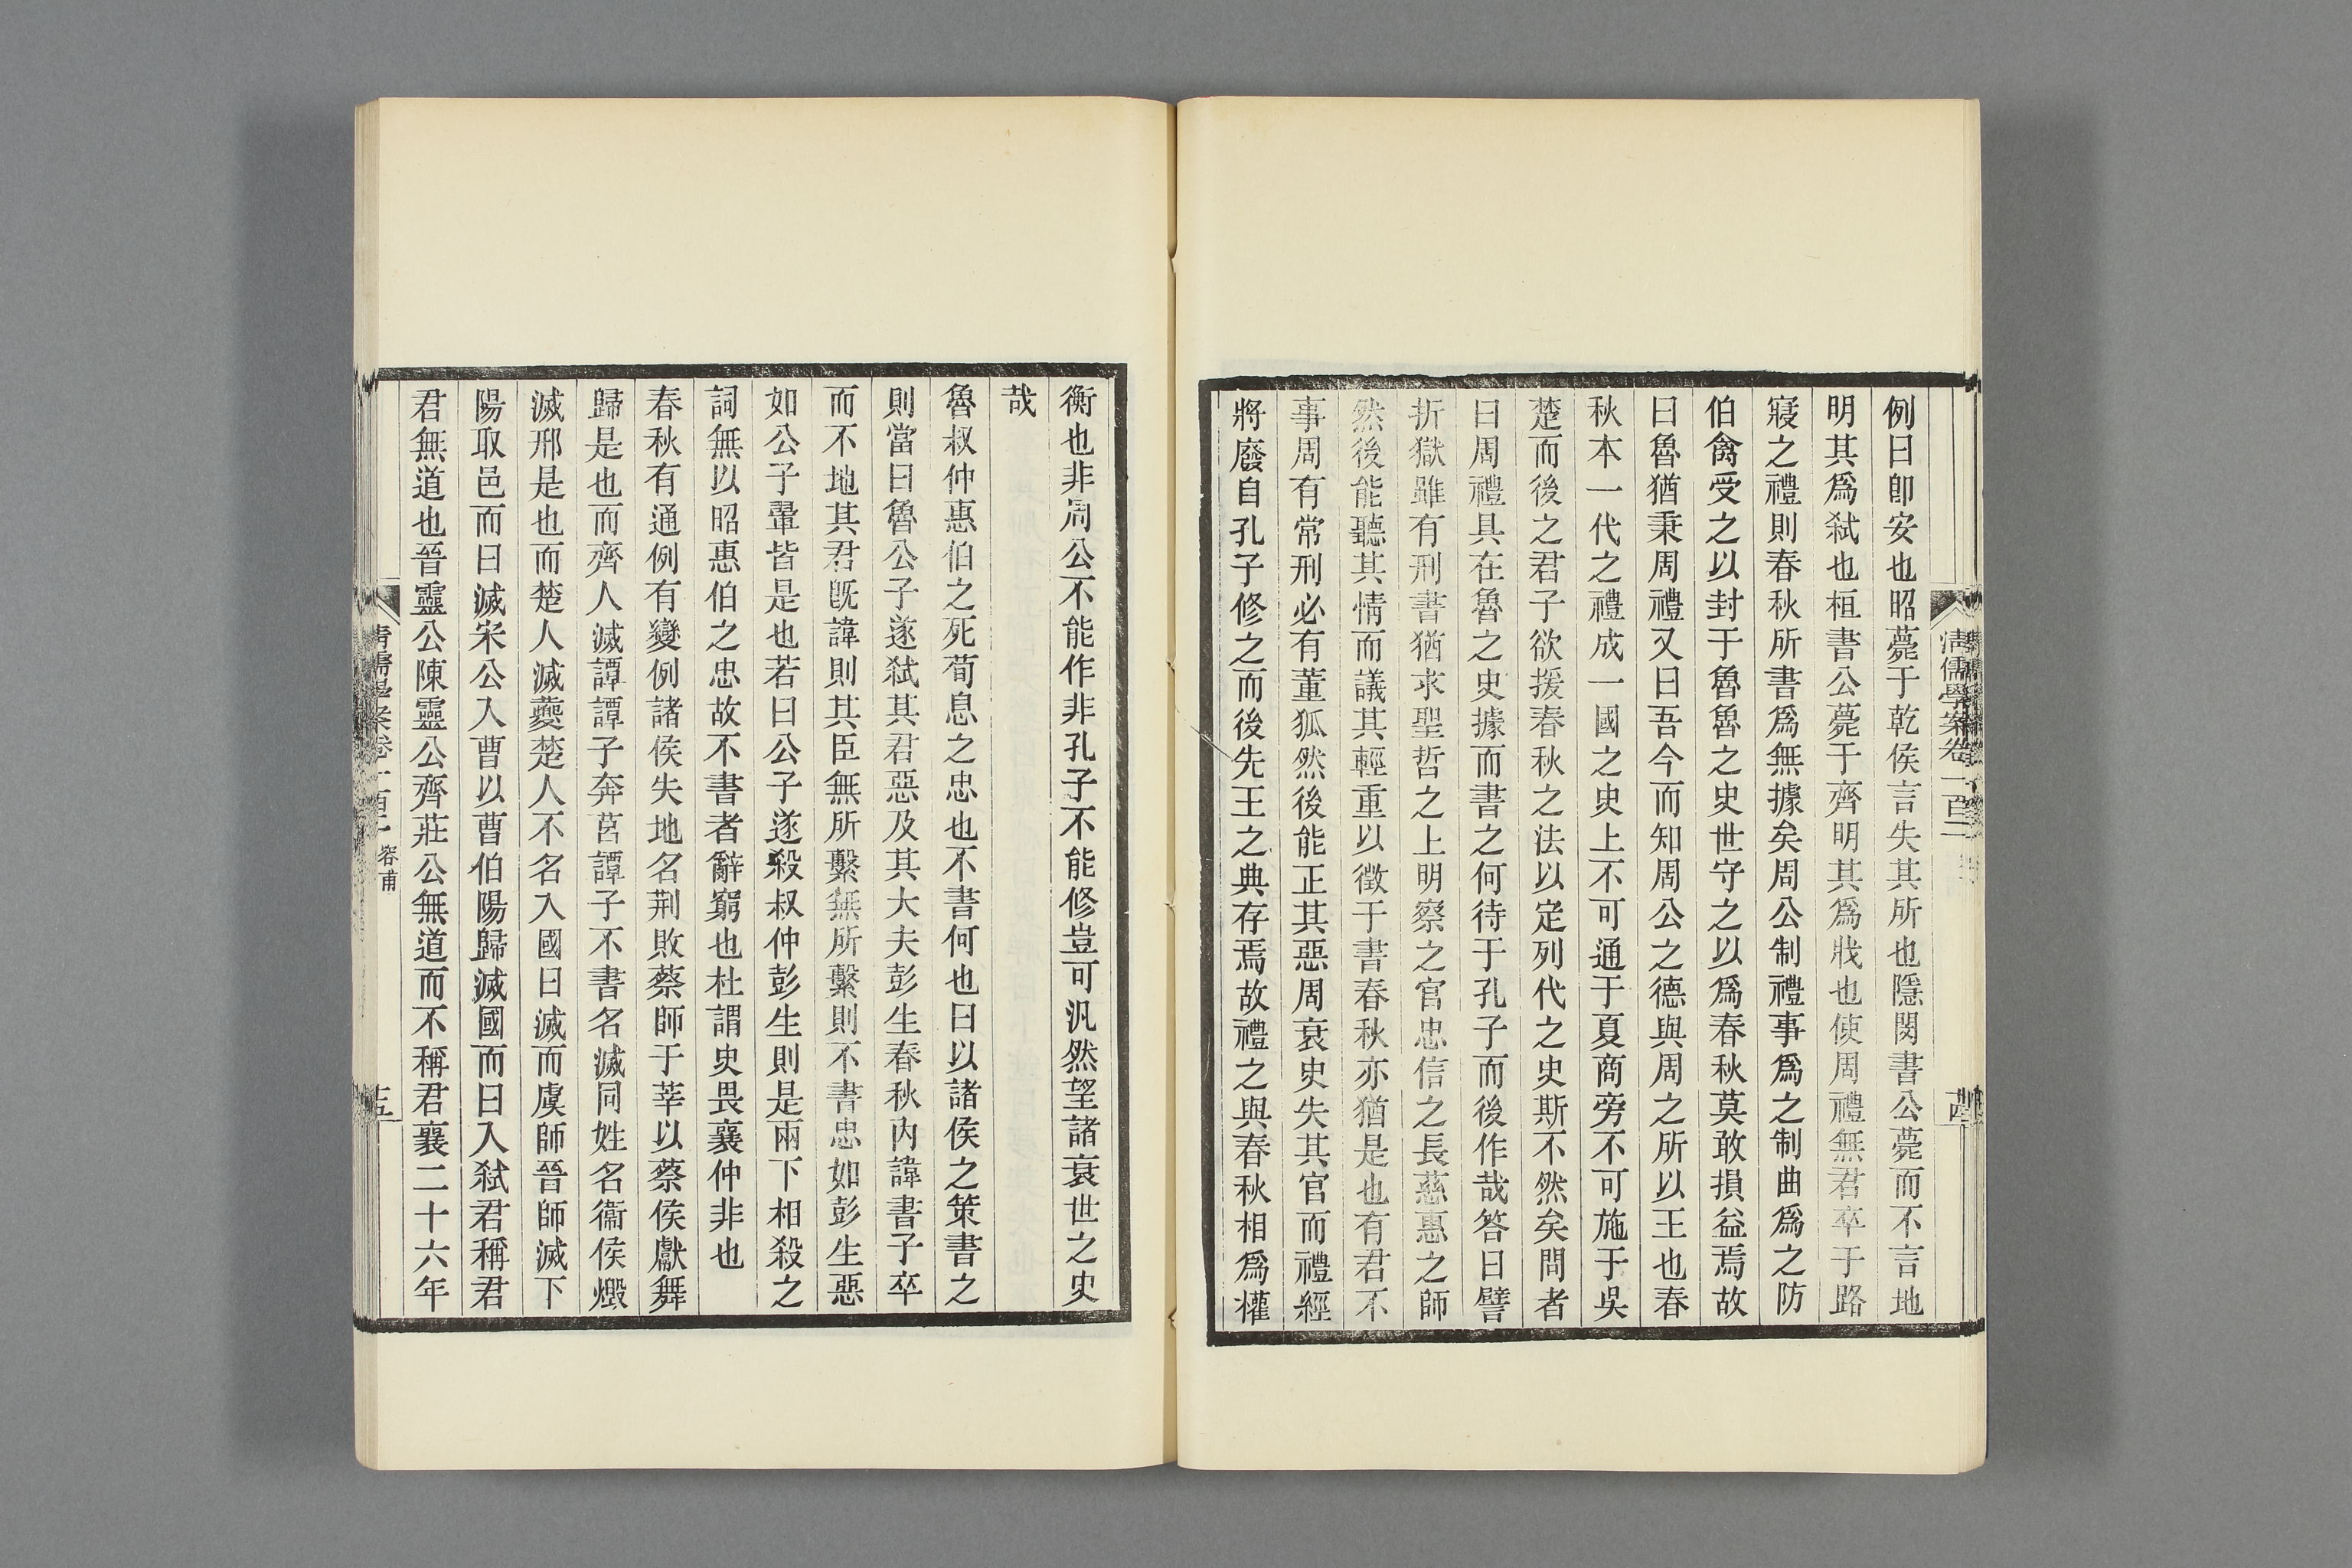 清儒學案卷一百二
例曰卽安也昭薨于乾侯言失其所也隱閔書公薨而不言地
明其爲弑也桓書公薨于齊明其爲戕也使周禮無君卒于路
寢之禮則春秋所書爲無據矣周公制禮事爲之制曲爲之防
伯禽受之以封于魯魯之史世守之以爲春秋莫敢損益焉故
曰魯猶秉周禮又曰吾今而知周公之德與周之所以王也春
秋本一代之禮成一國之史上不可通于夏商旁不可施于吳
楚而後之君子欲援春秋之法以定列代之史斯不然矣問者
曰周禮具在魯之史據而書之何待于孔子而後作哉答曰譬
折獄雖有刑書猶求聖哲之上明察之官忠信之長慈惠之師
然後能聽其情而議其輕重以徵于書春秋亦猶是也有君不
事周有常刑必有董狐然後能正其惡周衰史失其官而禮經
將廢自孔子修之而後先王之典存焉故禮之與春秋相爲權
衡也非周公不能作非孔子不能修豈可汎然望諸衰世之史
哉
魯叔仲惠伯之死荀息之忠也不書何也曰以諸侯之策書之
則當曰魯公子遂弑其君惡及其大夫彭生春秋內諱書子卒
而不地其君旣諱則其臣無所繫無所繫則不書忠如彭生惡
如公子翬皆是也若曰公子遂殺叔仲彭生則是兩下相殺之
詞無以昭惠伯之忠故不書者辭窮也杜謂史畏襄仲非也
春秋有通例有變例諸侯失地名荆敗蔡師于莘以蔡侯獻舞
歸是也而齊人滅譚譚子奔莒譚子不書名滅同姓名衞侯燬
滅邢是也而楚人滅夔楚人不名入國曰滅而虞師晉師滅下
陽取邑而曰滅宋公入曹以曹伯陽歸滅國而曰入弑君稱君
君無道也晉靈公陳靈公齊莊公無道而不稱君襄二十六年
容甫